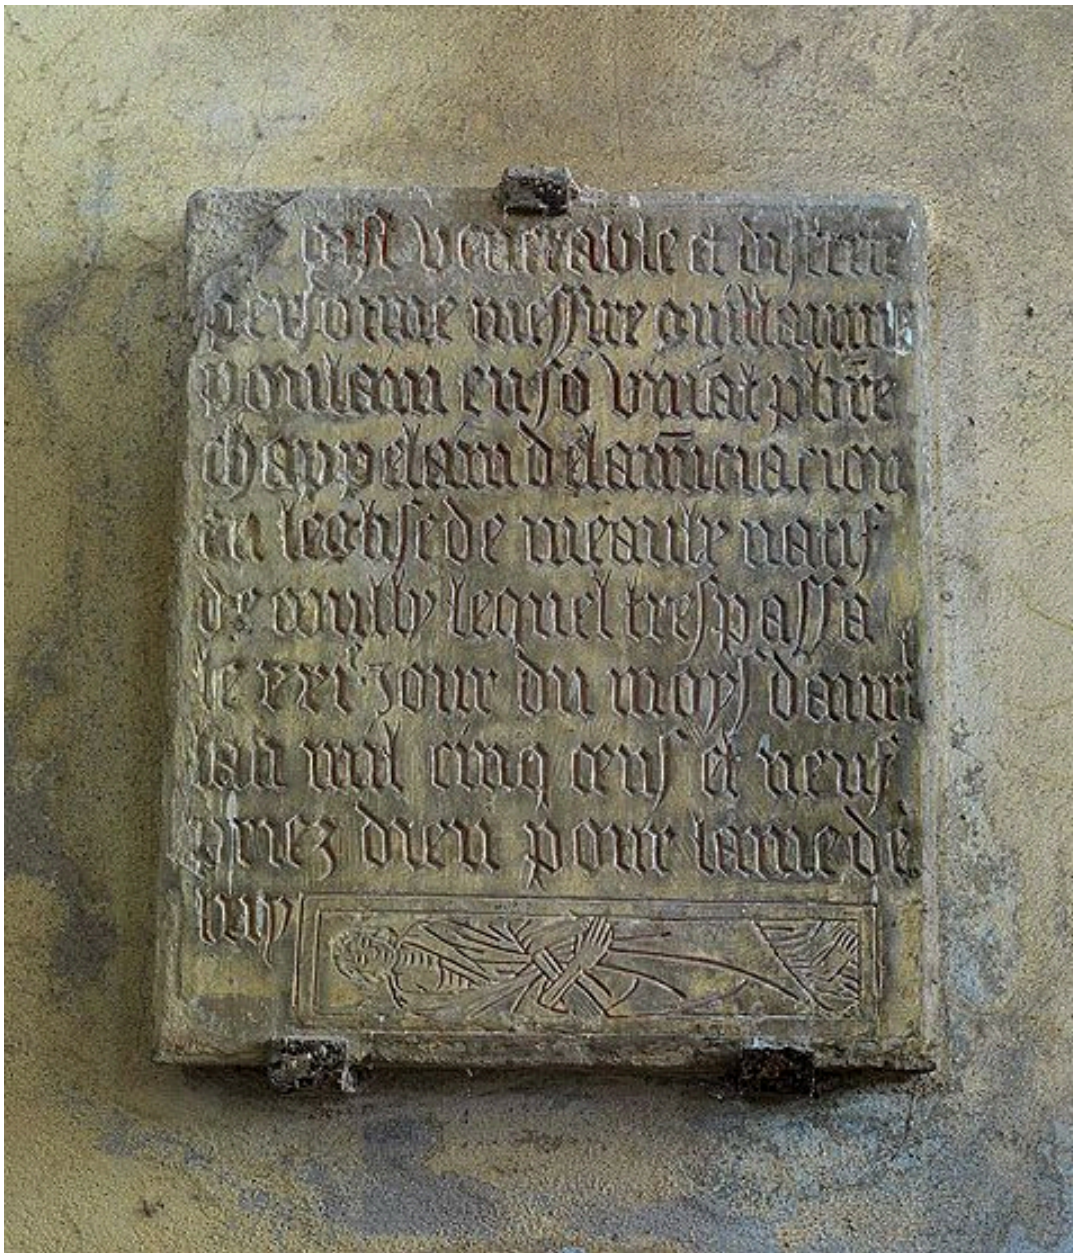 gist venerable et discrete
persoñne messire guillaume
poulain en sõ vivãt pbr̃e
chappelain de lañũciacion
en leglise de meaulx natif
de milly lequel trespassa
le xxi jour du moys davril
lan mil cinq cens et neuf
priez dieu pour lame de
luy